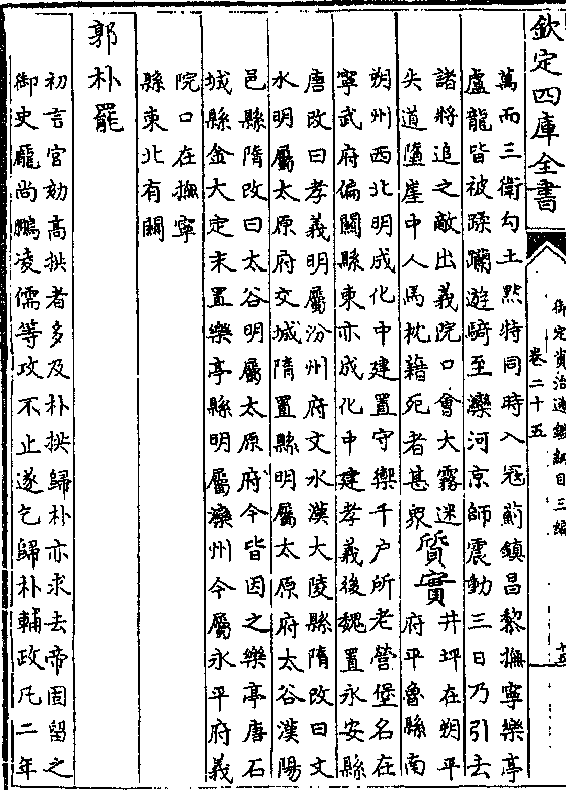 欽定四庫全書
御定資治通鑑綱目三編
卷二十五
十五
萬而三衛勾土黙特同時入冦薊鎮昌黎撫寧樂亭
盧龍皆被蹂躪遊騎至灤河京師震動三日乃引去
諸將追之敵出義院口會大霧迷
失道墮崖中人馬枕藉死者甚衆
質實
井坪在朔平
府平魯縣南
朔州西北明成化中建置守禦千户所老營堡名在
寧武府偏關縣東亦成化中建孝義後魏置永安縣
唐改曰孝義明屬汾州府文水漢大陵縣隋改曰文
水明屬太原府交城隋置縣明屬太原府太谷漢陽
邑縣隋改曰太谷明屬太原府今皆因之樂亭唐石
城縣金大定末置樂亭縣明屬灤州今屬永平府義
院口在撫寧
縣東北有關
郭朴罷
初言官劾高拱者多及朴拱歸朴亦求去帝固留之
御史龐尚鵬凌儒等攻不止遂乞歸朴輔政凡二年